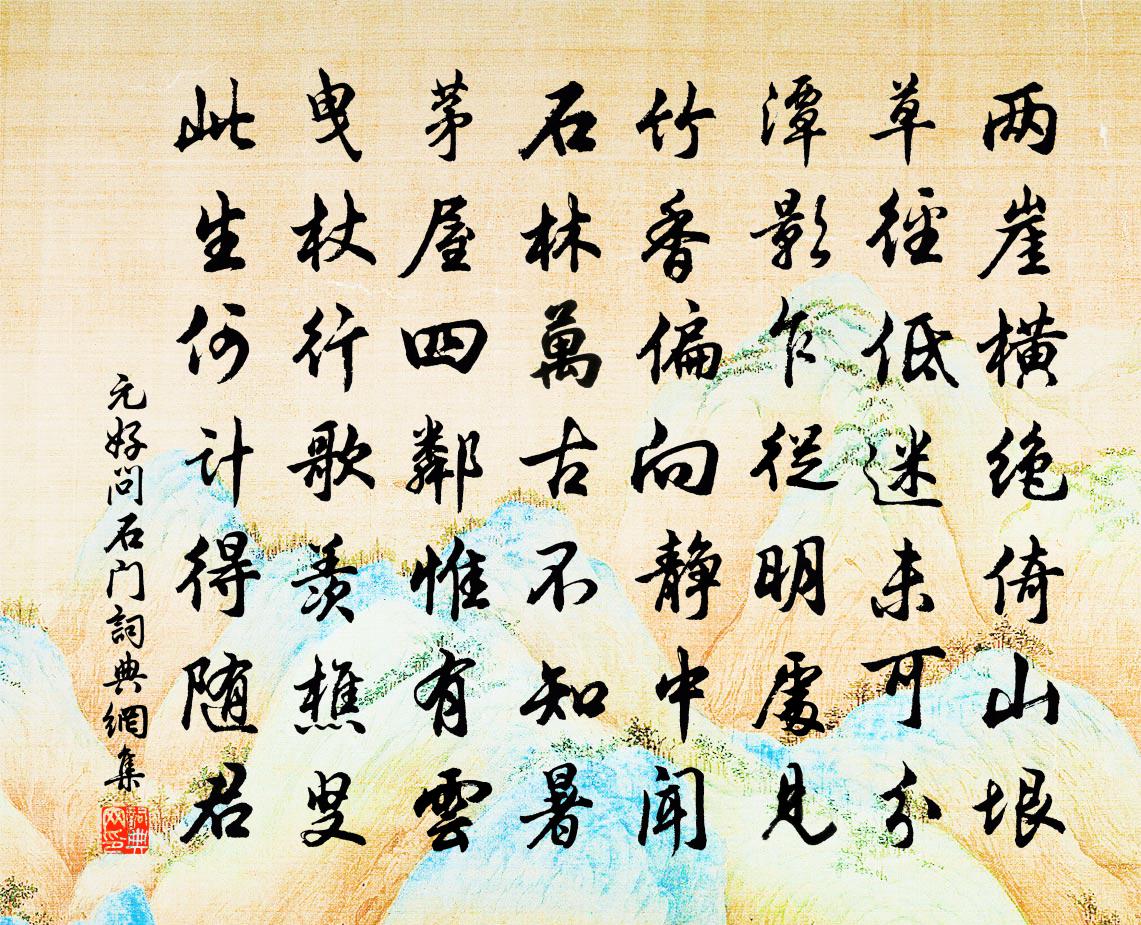 两崖橫绝倚山垠
草徑低迷未可分
潭影乍從明處見
竹香偏向静中闻
石林萬古不知暑
茅屋四鄰惟有雲
曳杖行歌羡樵叟
此生何计得随君
元好问石门詞典網集